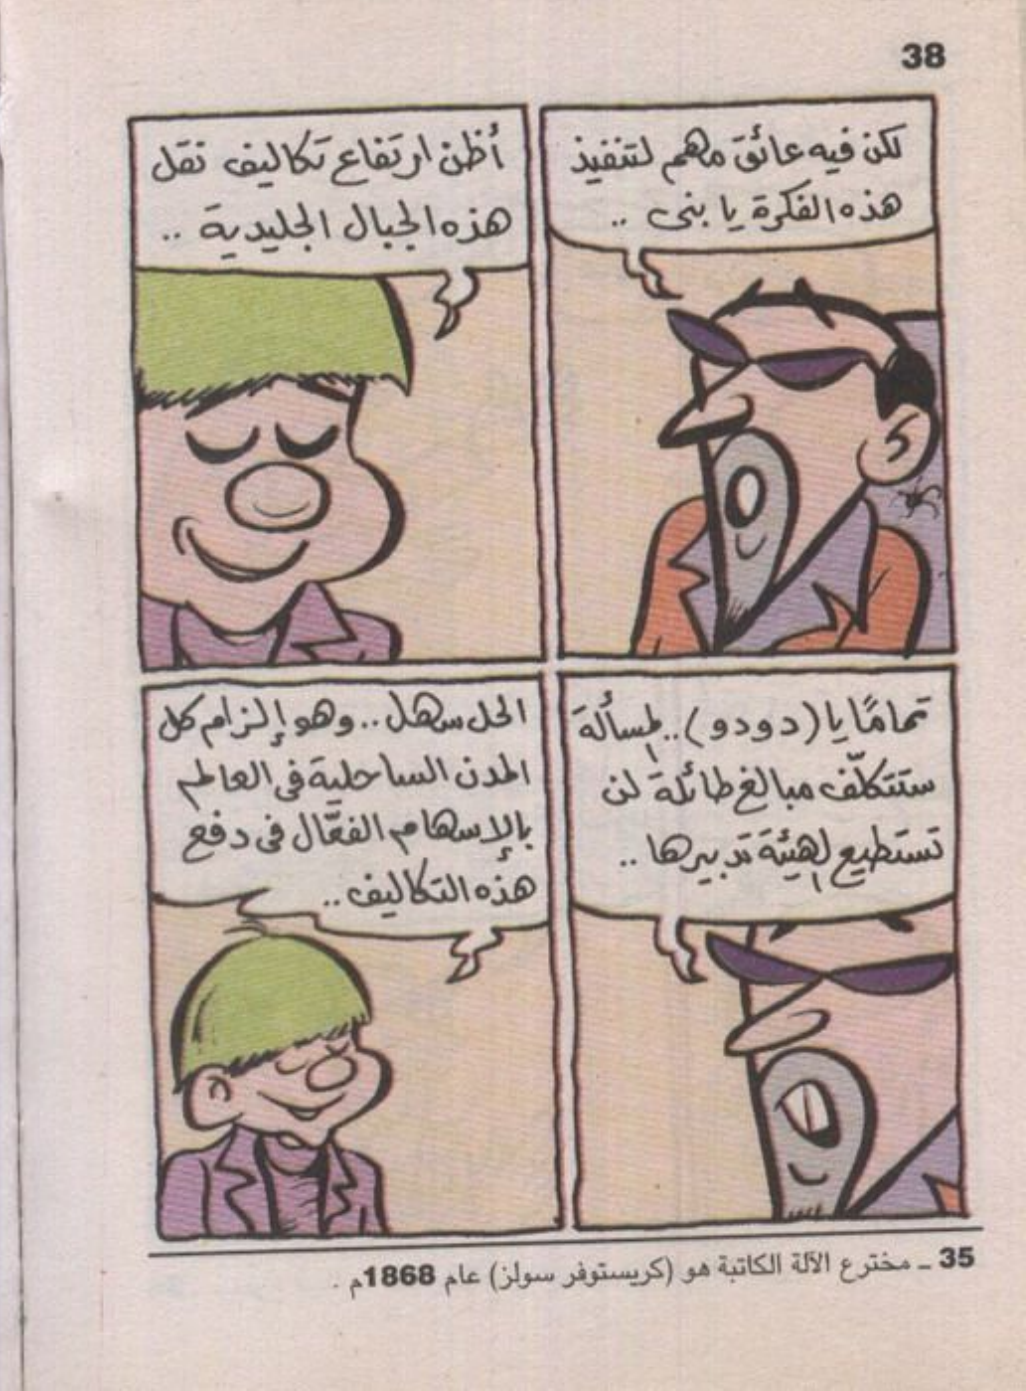 38
لكن فيه عائق مهم لتنفيذ
هذه الفكرة يا بنى ..
أظن ارتفاع تكاليف نقل
هذه الجبال الجليدية ..
تمامًا يا (دودو).. المسألة
ستتكلّف مبالغ طائلة لن
تستطيع الهيئة تدبيرها ..
الحل سهل.. وهو إلزام كل
المدن الساحلية فى العالم
بالإسهام الفعّال فى دفع
هذه التكاليف ..
35 ـ مخترع الآلة الكاتبة هو (كريستوفر سولز) عام 1868م .